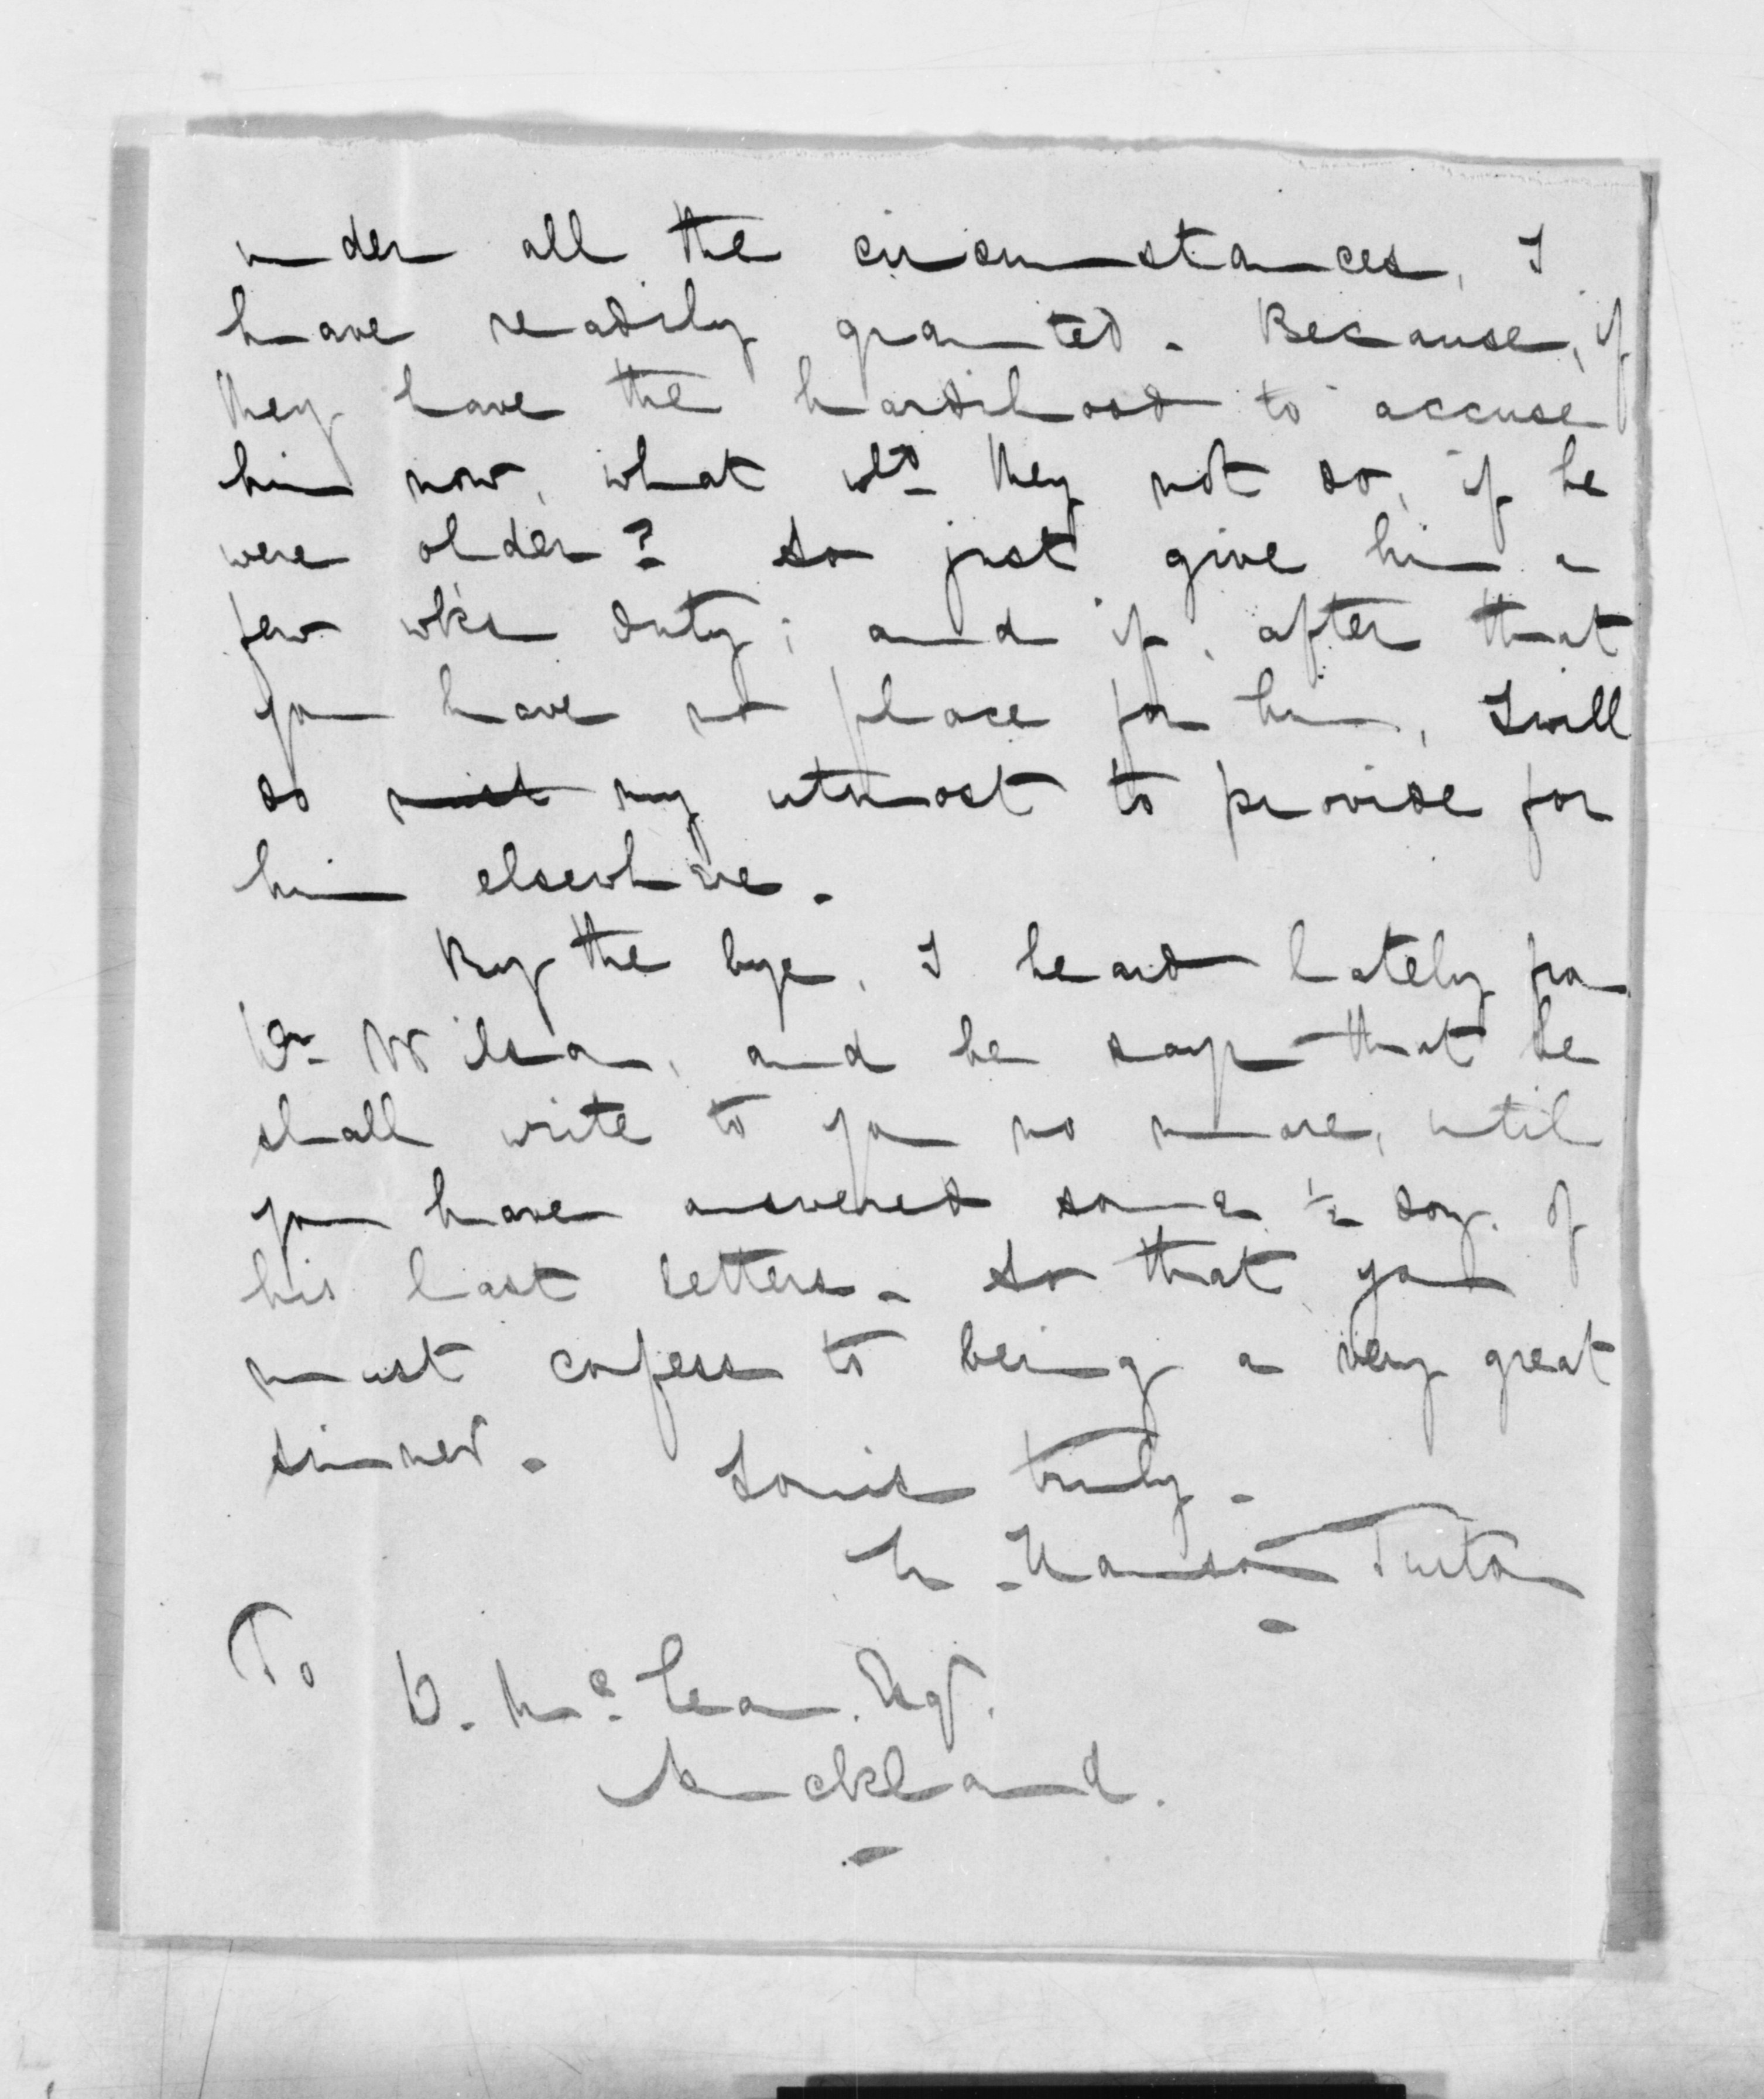 under all the circumstances, I
have readily granted. Because, if
they have the hardihood to accuse
him now, what wld they not do, if he
were older? So just give him a
few wk's duty; and if, after that
you have no place for him, I will
do my utmost to provide for
him elsewhere.
By the bye, I heard lately from
Dr Wilson, and he says that he
shall write to you no more, until
you have answered some 1/2 doz. of
his last letters. So that you
must confess to being a very great
sinner. Yours truly.
H. Hanson Turton
To
D. McLean. Esqr.
Auckland.